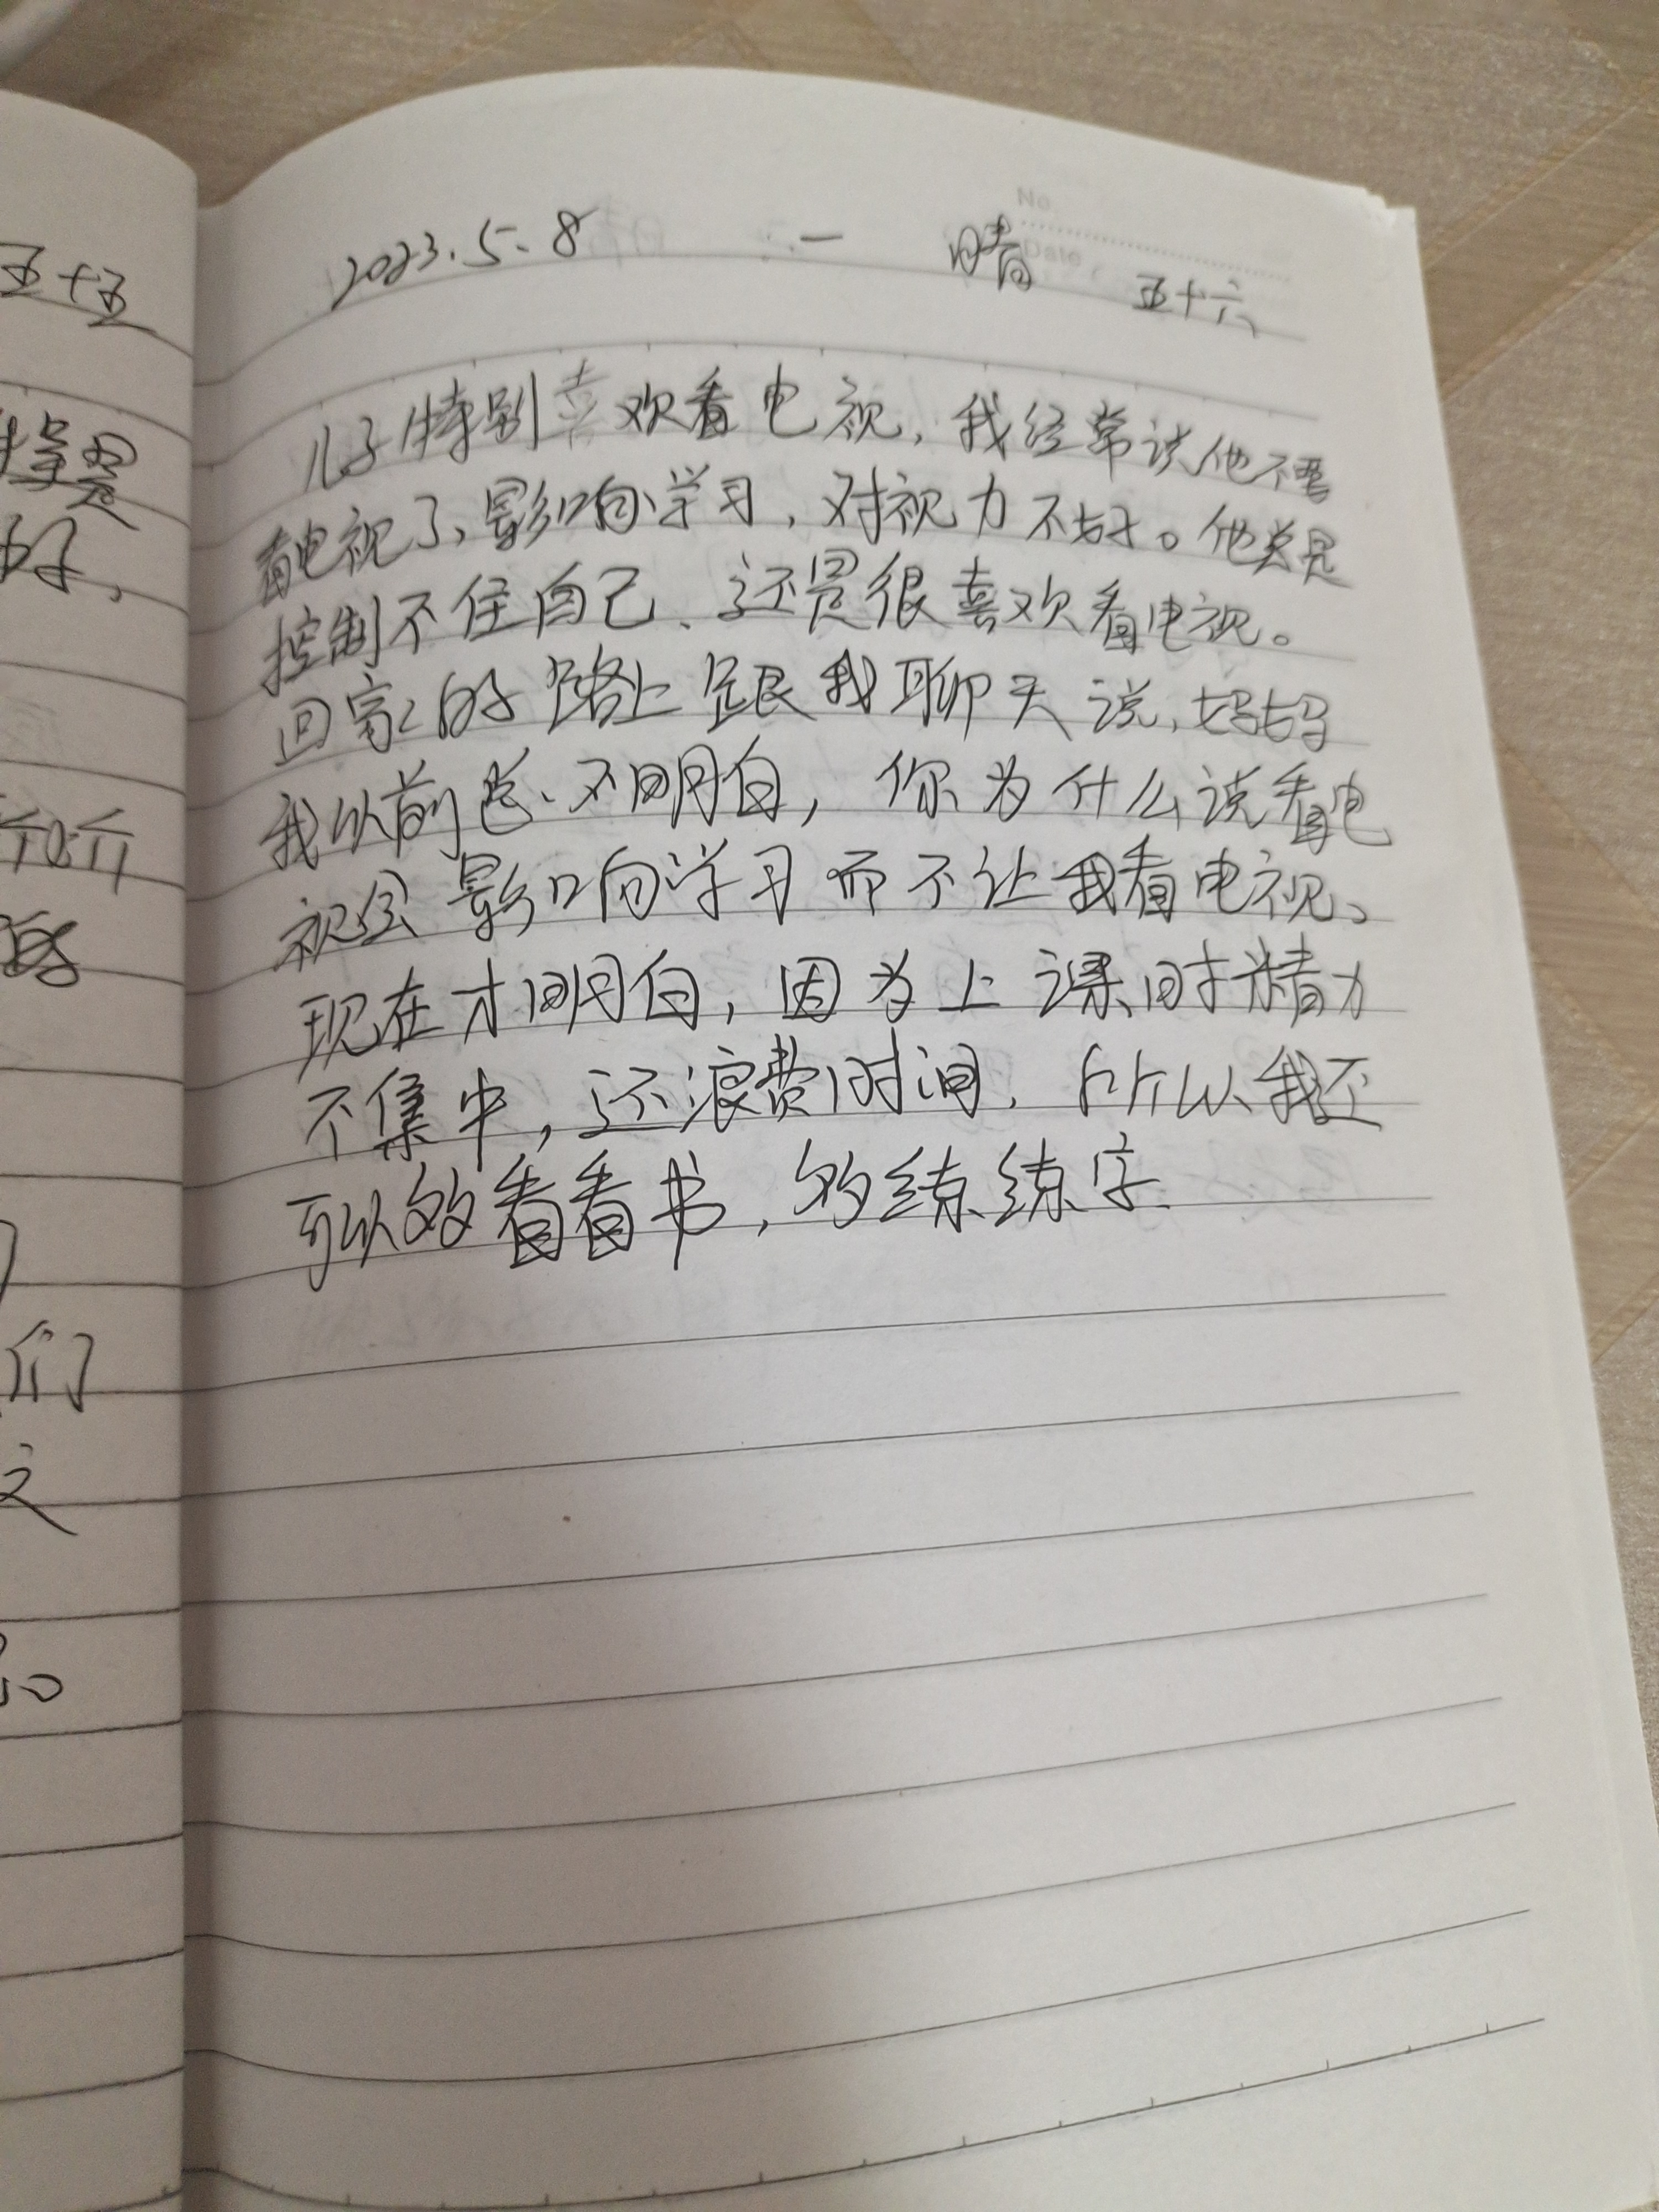 五十五
2023.5.8 一 晴 五十六
No
Date
儿子特别喜欢看电视,我经常说他不要
看电视了、影响学习,对视力不好。他总是
控制不住自己、还是很喜欢看电视。
回家的路上跟我聊天说、妈妈
我以前总不明白,你为什么说看电
视会影响学习而不让我看电视、
现在才明白,因为上课时精力
不集中,还浪费时间.所以我还
可以多看看书,多练练字.
好,
们
文